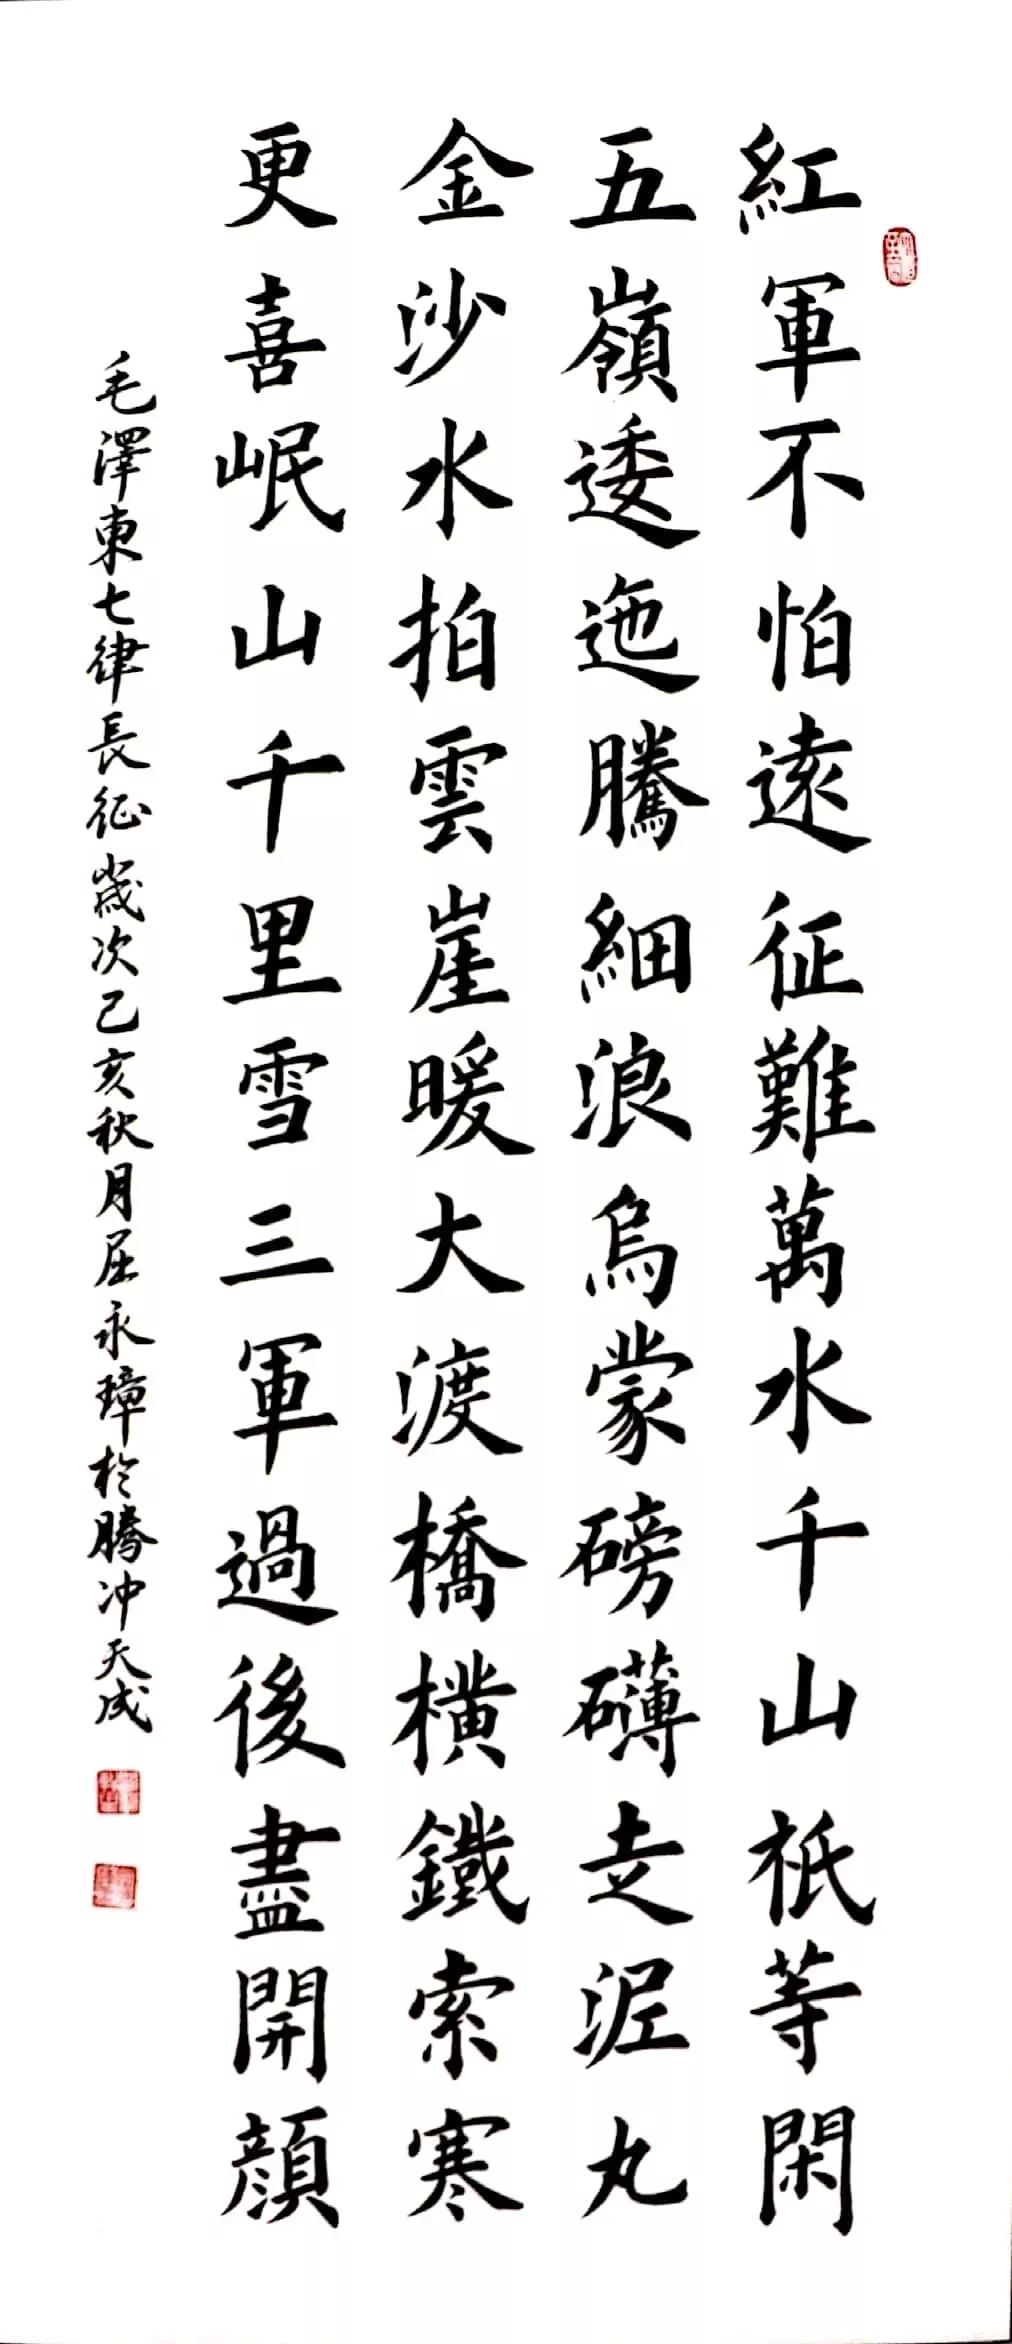 紅軍不怕遠征難萬水千山祇等閑
五嶺逶迤騰細浪烏蒙磅礴走泥丸
金沙水拍雲崖暖大渡橋橫鐵索寒
更喜岷山千里雪三軍過後盡開顏
毛澤東七律長征歲次己亥秋月屈永璋於騰冲天成